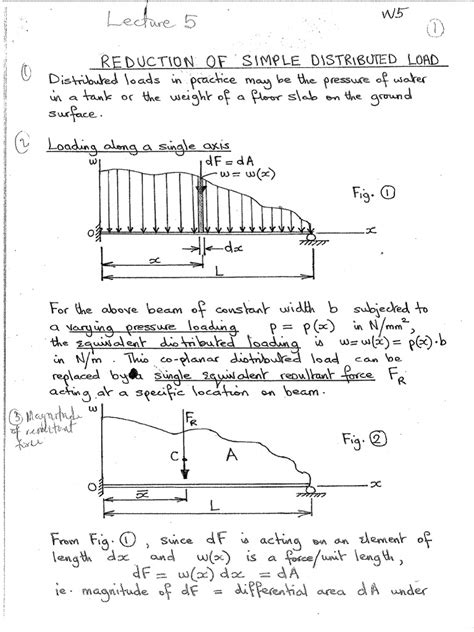 Lecture 5
W5
①
REDUCTION OF SIMPLE DISTRIBUTED LOAD
① Distributed loads in practice may be the pressure of water
in a tank or the weight of a floor slab on the ground
surface.
② Loading along a single axis
w
dF = dA
w = w(x)
Fig. ①
O
x
dx
x
L
For the above beam of constant width b subjected to
a varying pressure loading p = p(x) in N/mm²,
the equivalent distributed loading is w = w(x) = p(x)·b
in N/m. This co-planar distributed load can be
replaced by a single equivalent resultant force F_R
acting at a specific location on beam.
③ Magnitude
of resultant
force
w
F_R
Fig. ②
C
A
O
x
x̄
L
From Fig. ①, since dF is acting on an element of
length dx and w(x) is a force/unit length,
dF = w(x) dx = dA
ie. magnitude of dF = differential area dA under